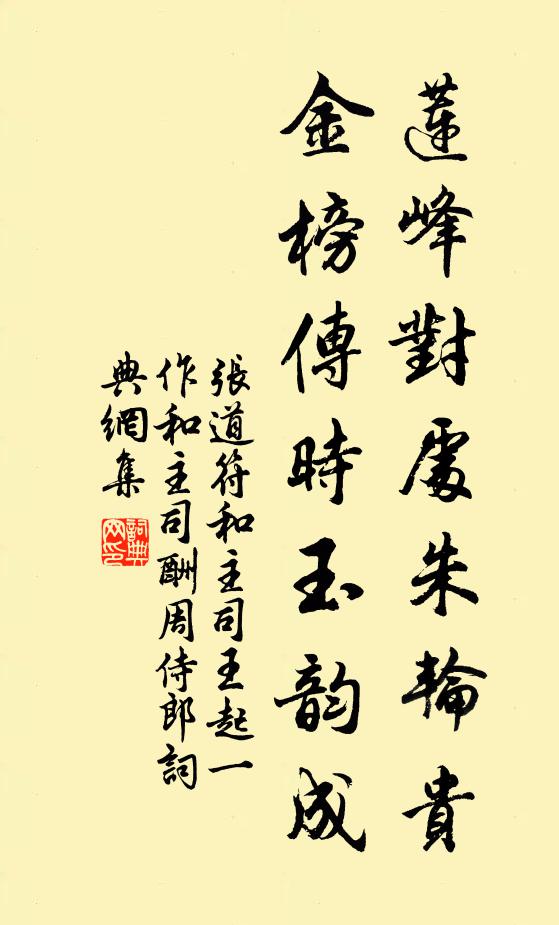 蓮峰對處朱輪貴
金榜傳時玉韵成
張道符和主司王起一
作和主司酬周侍郎詞
典網集
詞典網印